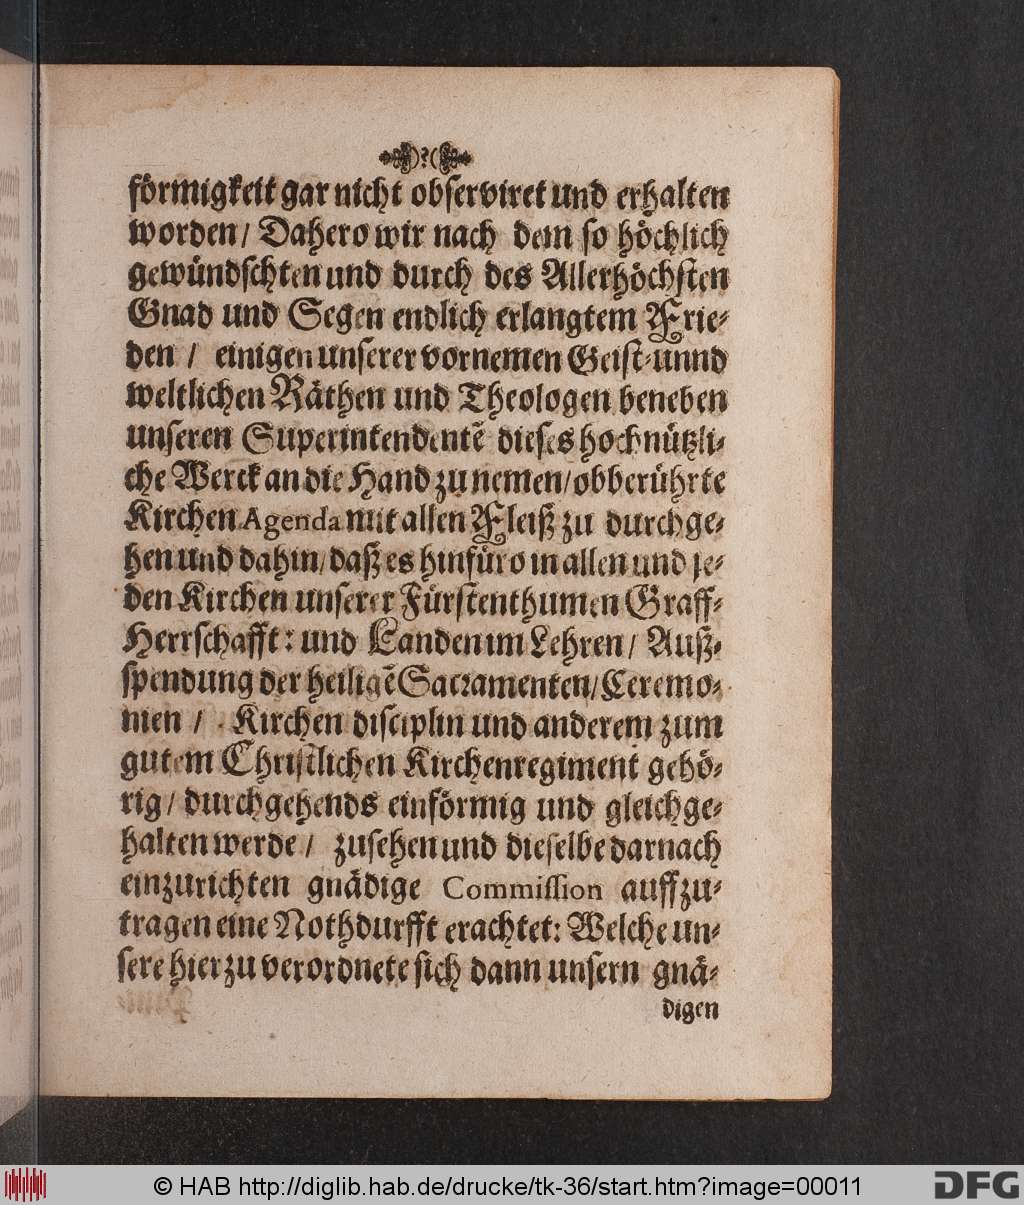 )?(
förmigkeit gar nicht observiret und erhalten
worden / Dahero wir nach dem so höchlich
gewündschten und durch des Allerhöchsten
Gnad und Segen endlich erlangtem Frie-
den / einigen unserer vornemen Geist- unnd
weltlichen Räthen und Theologen beneben
unseren Superintendentẽ dieses hochnützli-
che Werck an die Hand zu nemen / obberührte
Kirchen Agenda mit allen Fleiß zu durchge-
hen und dahin / daß es hinfüro in allen und je-
den Kirchen unserer Fürstenthumen Graff-
Herrschafft: und Landen im Lehren / Auß-
spendung der heiligẽ Sacramenten / Ceremo-
nien / Kirchen disciplin und anderem zum
gutem Christlichen Kirchenregiment gehö-
rig / durchgehends einförmig und gleichge-
halten werde / zusehen und dieselbe darnach
einzurichten gnädige Commission auffzu-
tragen eine Nothdurfft erachtet: Welche un-
sere hierzu verordnete sich dann unsern gnä-
digen
© HAB http://diglib.hab.de/drucke/tk-36/start.htm?image=00011
DFG